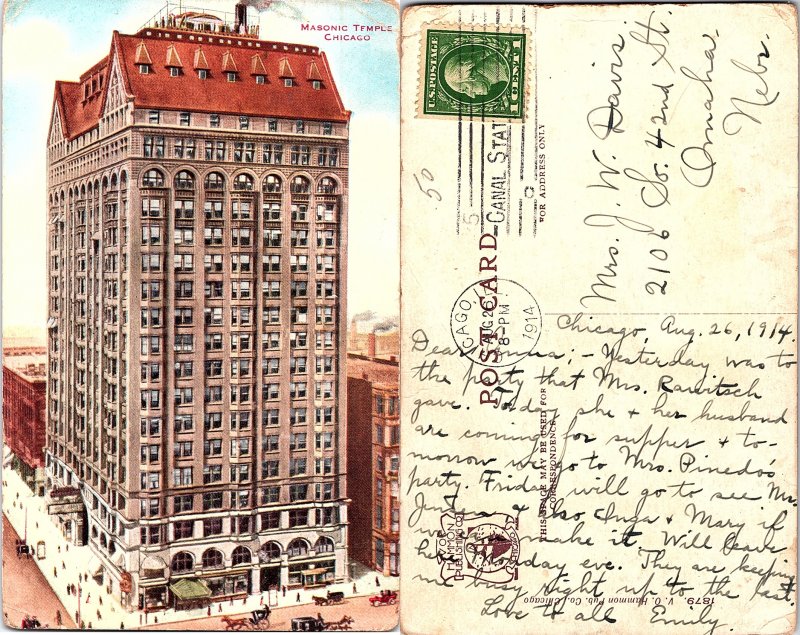 MASONIC TEMPLE
CHICAGO
U.S. POSTAGE
1 CENT 1
50
CANAL STA
CHICAGO,
AUG 26
8-PM
1914
POST CARD
FOR ADDRESS ONLY
THIS SPACE MAY BE USED FOR
CORRESPONDENCE
Mrs. J. W. Davis
2106 So. 42nd St.
Omaha.
Nebr.
Chicago, Aug. 26, 1914.
Dear ;- Yesterday was to
the party that Mrs. Ranitsch
gave. Today she + her husband
are coming for supper + to-
morrow we go to Mrs. Pinedo's
party. Friday will go to see Mr.
+ also Inga + Mary if
make it. Will leave
eve. They are keeping
me busy right up to the last.
Love to all Emily.
V. O. HAMMON
PUBLISHING CO.
CHICAGO
1879. V. O. Hammon Pub. Co., Chicago